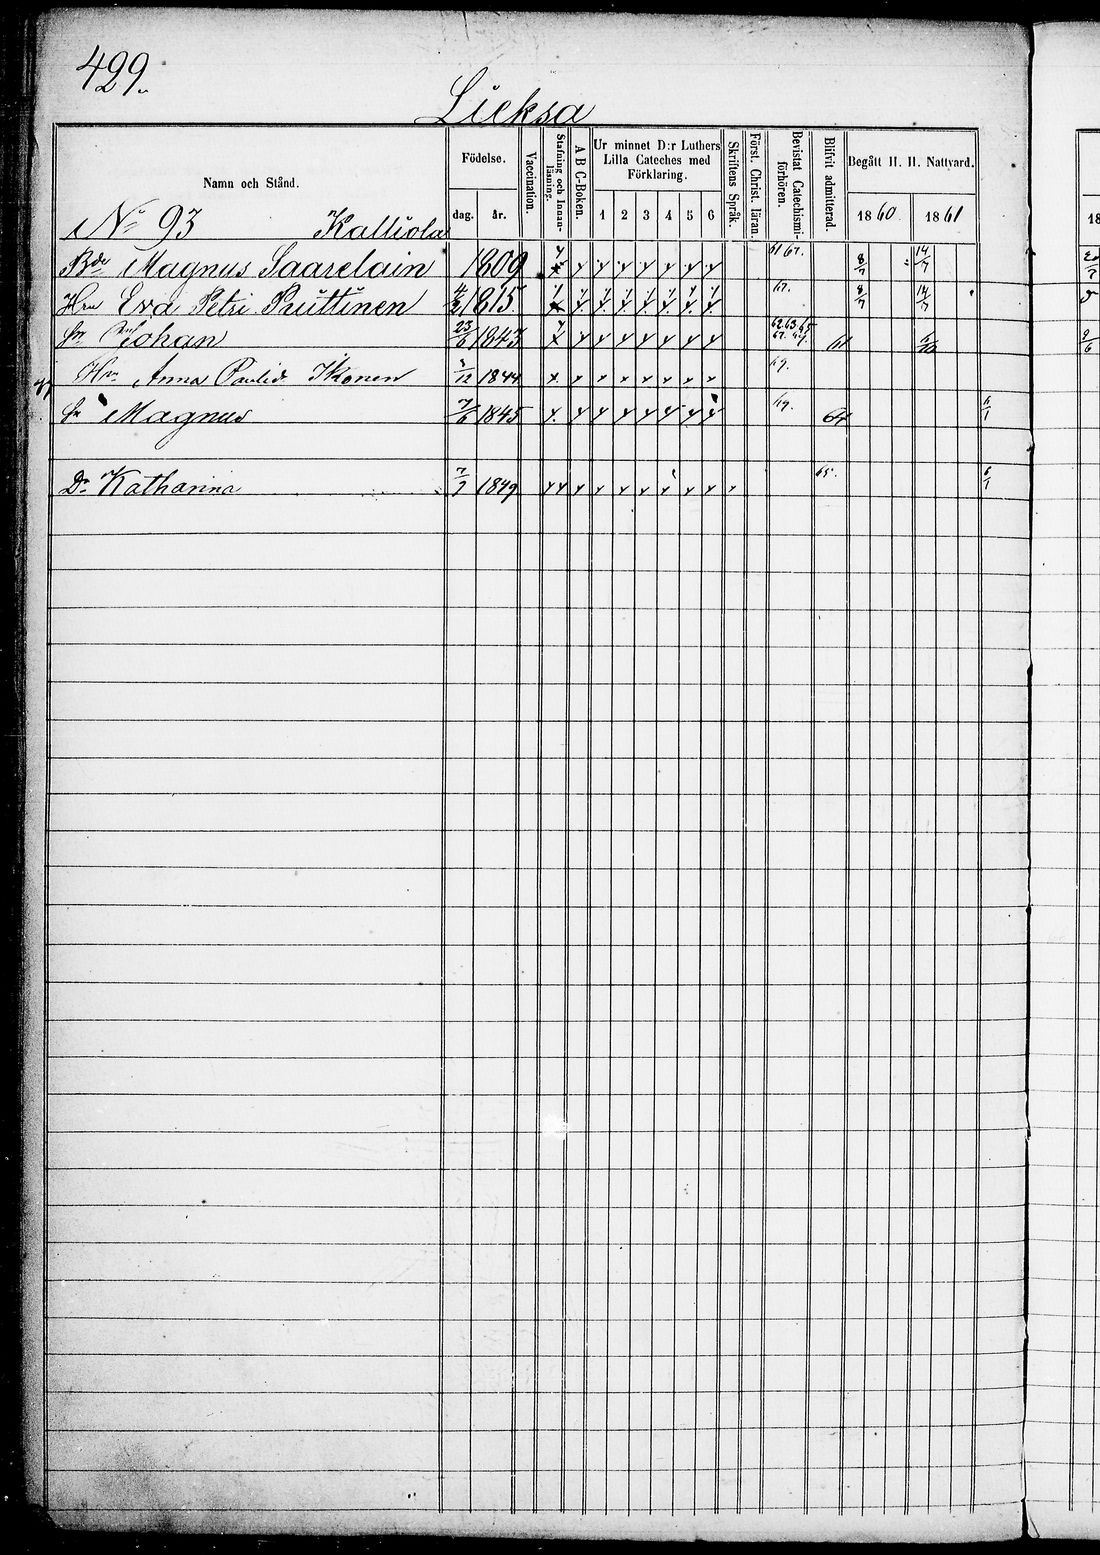 499.
Lieksa
Namn och Stånd.
Födelse.
dag. år.
Vaccination.
Stafning och Innanläsning.
A B C-Boken.
Ur minnet D:r Luthers Lilla Cateches med Förklaring.
1 2 3 4 5 6
Skriftens Språk.
Först. Christ. läran.
Bevistat Catechismiförhören.
Blifvit admitterad.
Begått H. H. Nattvard.
1860 1861
No 93 Kalliola
Bde Magnus Saarelain 1809 61 67. 8/7 14/7
Hru Eva Petri Puittinen 4/2 1815 67. 8/7 14/7
Sn Johan 23/6 1843 62 63 65 67. 69. 61
Hru Anna Paulsd. Ikonen 1/12 1844 69.
Sn Magnus 7/6 1845 69. 64 6/1
Dr Katharina 7/7 1849 65. 6/1